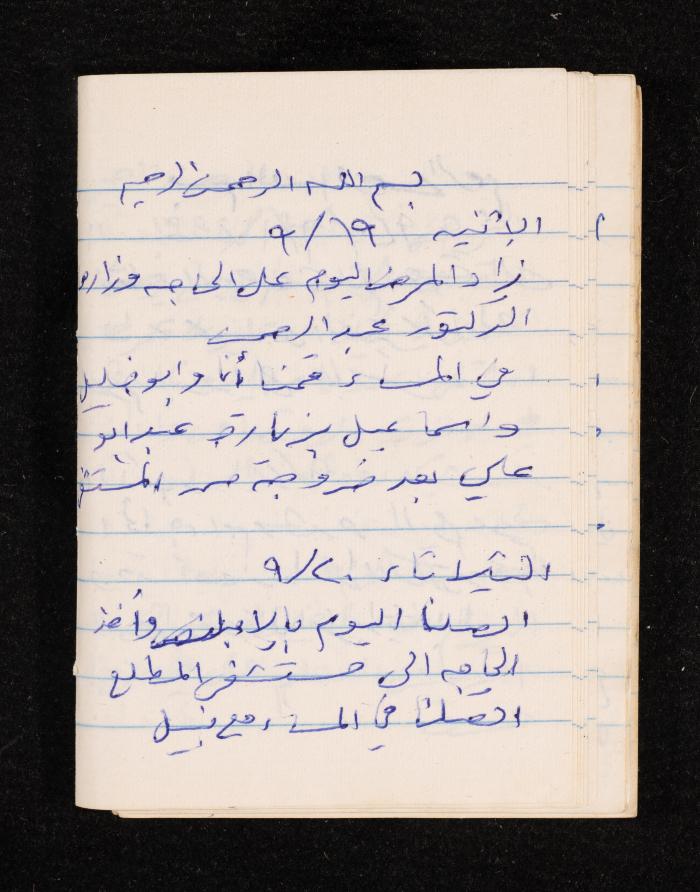 بسم الله الرحمن الرحيم
الاثنين ٩/١٩
زاد المرض اليوم على الحاجه وزاره
الدكتور عبد الرحمن
في المساء قمنا أنا وابو خليل
واسماعيل بزيارة عند ابو
علي بعد خروجة من المستشفى
الثلاثاء ٩/٢٠
اتصلنا اليوم وأخذ
الحاجه الى مستشفى المطلع
اتصلنا في المساء مع نبيل